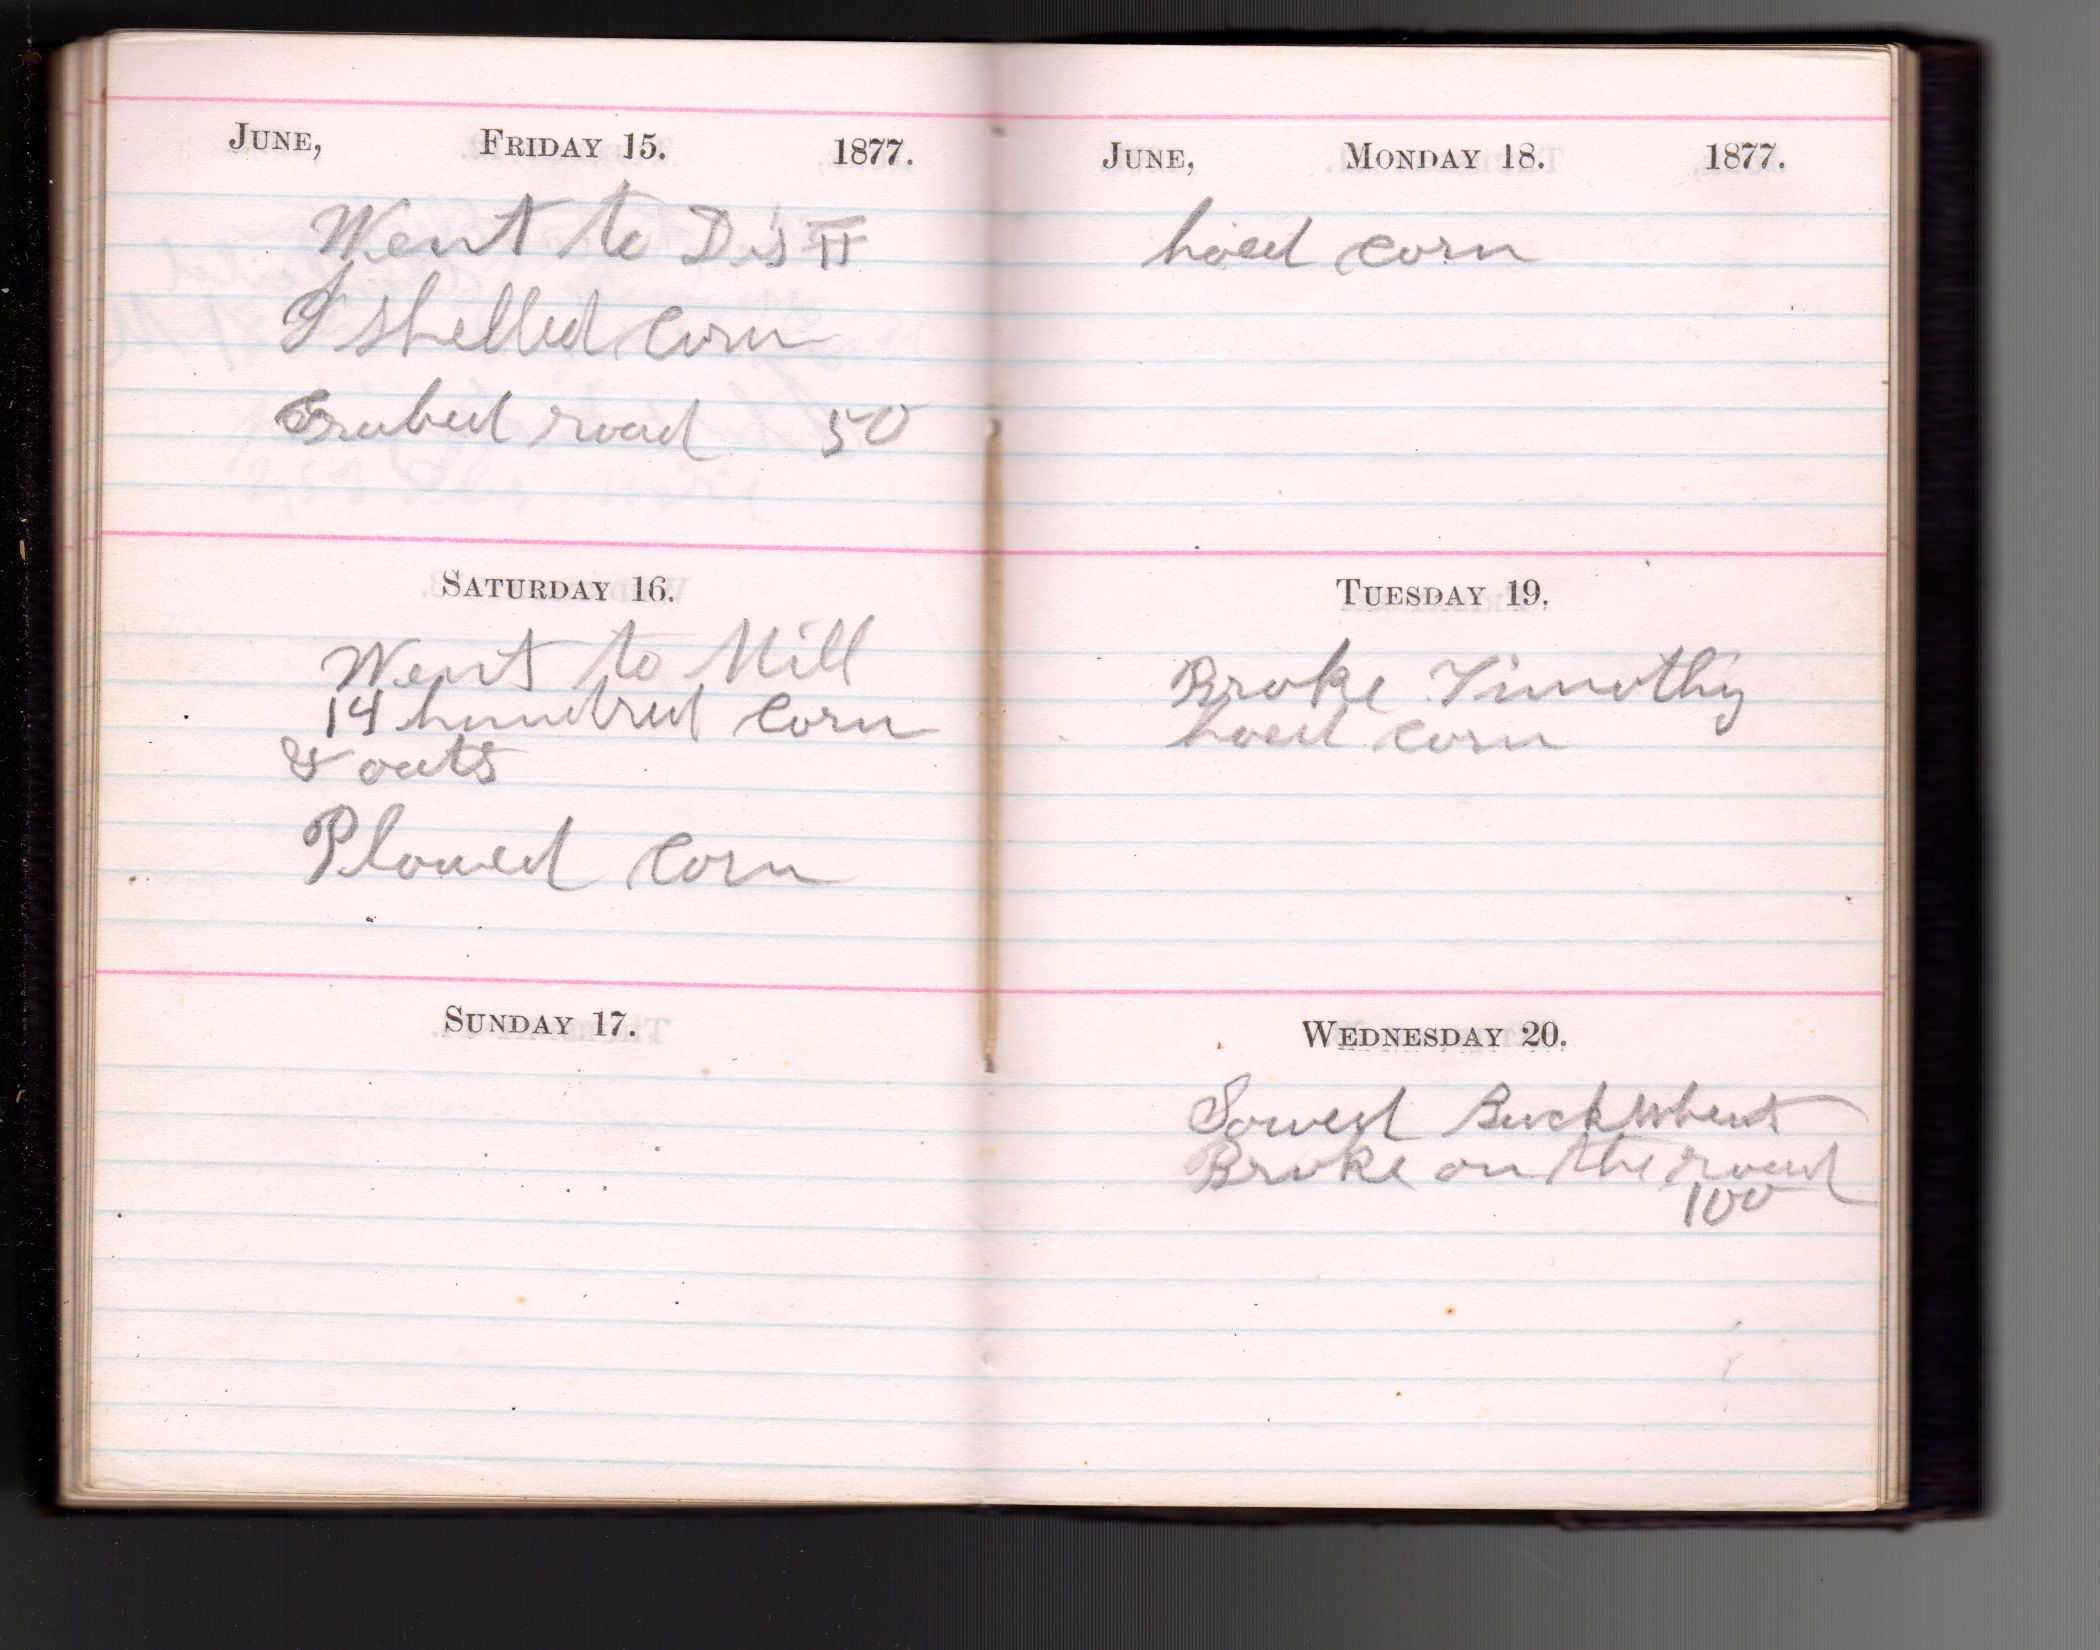 JUNE, FRIDAY 15. 1877.
Went to D's II
& shelled corn
Grubed road 50
SATURDAY 16.
Went to Mill
14 hundred corn
& oats
Plowed corn
SUNDAY 17.
JUNE, MONDAY 18. 1877.
hoed corn
TUESDAY 19.
Broke Timothy
hoed corn
WEDNESDAY 20.
Sowed Buckwheat
Broke on the road
100